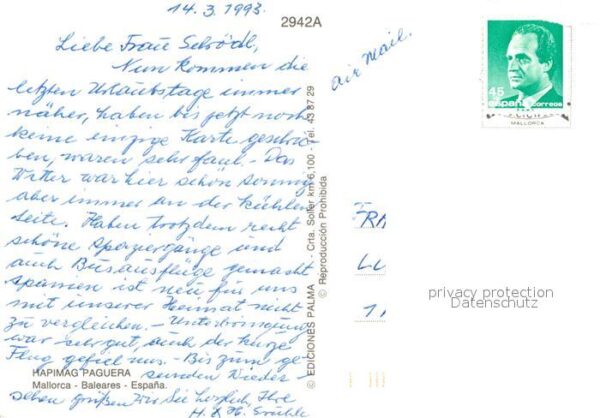 14.3.1993.
2942A
Liebe Frau Schrödl,
Nun kommen die
letzten Urlaubstage immer
näher, haben bis jetzt noch
keine einzige Karte geschrie-
ben, waren sehr faul. - Das
Wetter war hier schön sonnig
aber immer an der kühlen
Seite. Haben trotzdem recht
schöne Sperziergänge und
auch Busausflüge gemacht
Spanien ist neu für uns
mit unserer Heimat nicht
zu vergleichen. - Unterbringung
war sehr gut, auch der kurze
Flug gefiel uns. - Bis zum ge-
sunden Wieder-
sehen grüßen wir Sie herzlich, Ihre
H. &
HAPIMAG PAGUERA
Mallorca - Baleares - España.
© EDICIONES PALMA - Crta. Soller km 6,100 - Tel. 43 87 29
© Reproducción Prohibida
air Mail.
45
españa correos
MALLORCA
FR
LU
1
privacy protection
Datenschutz